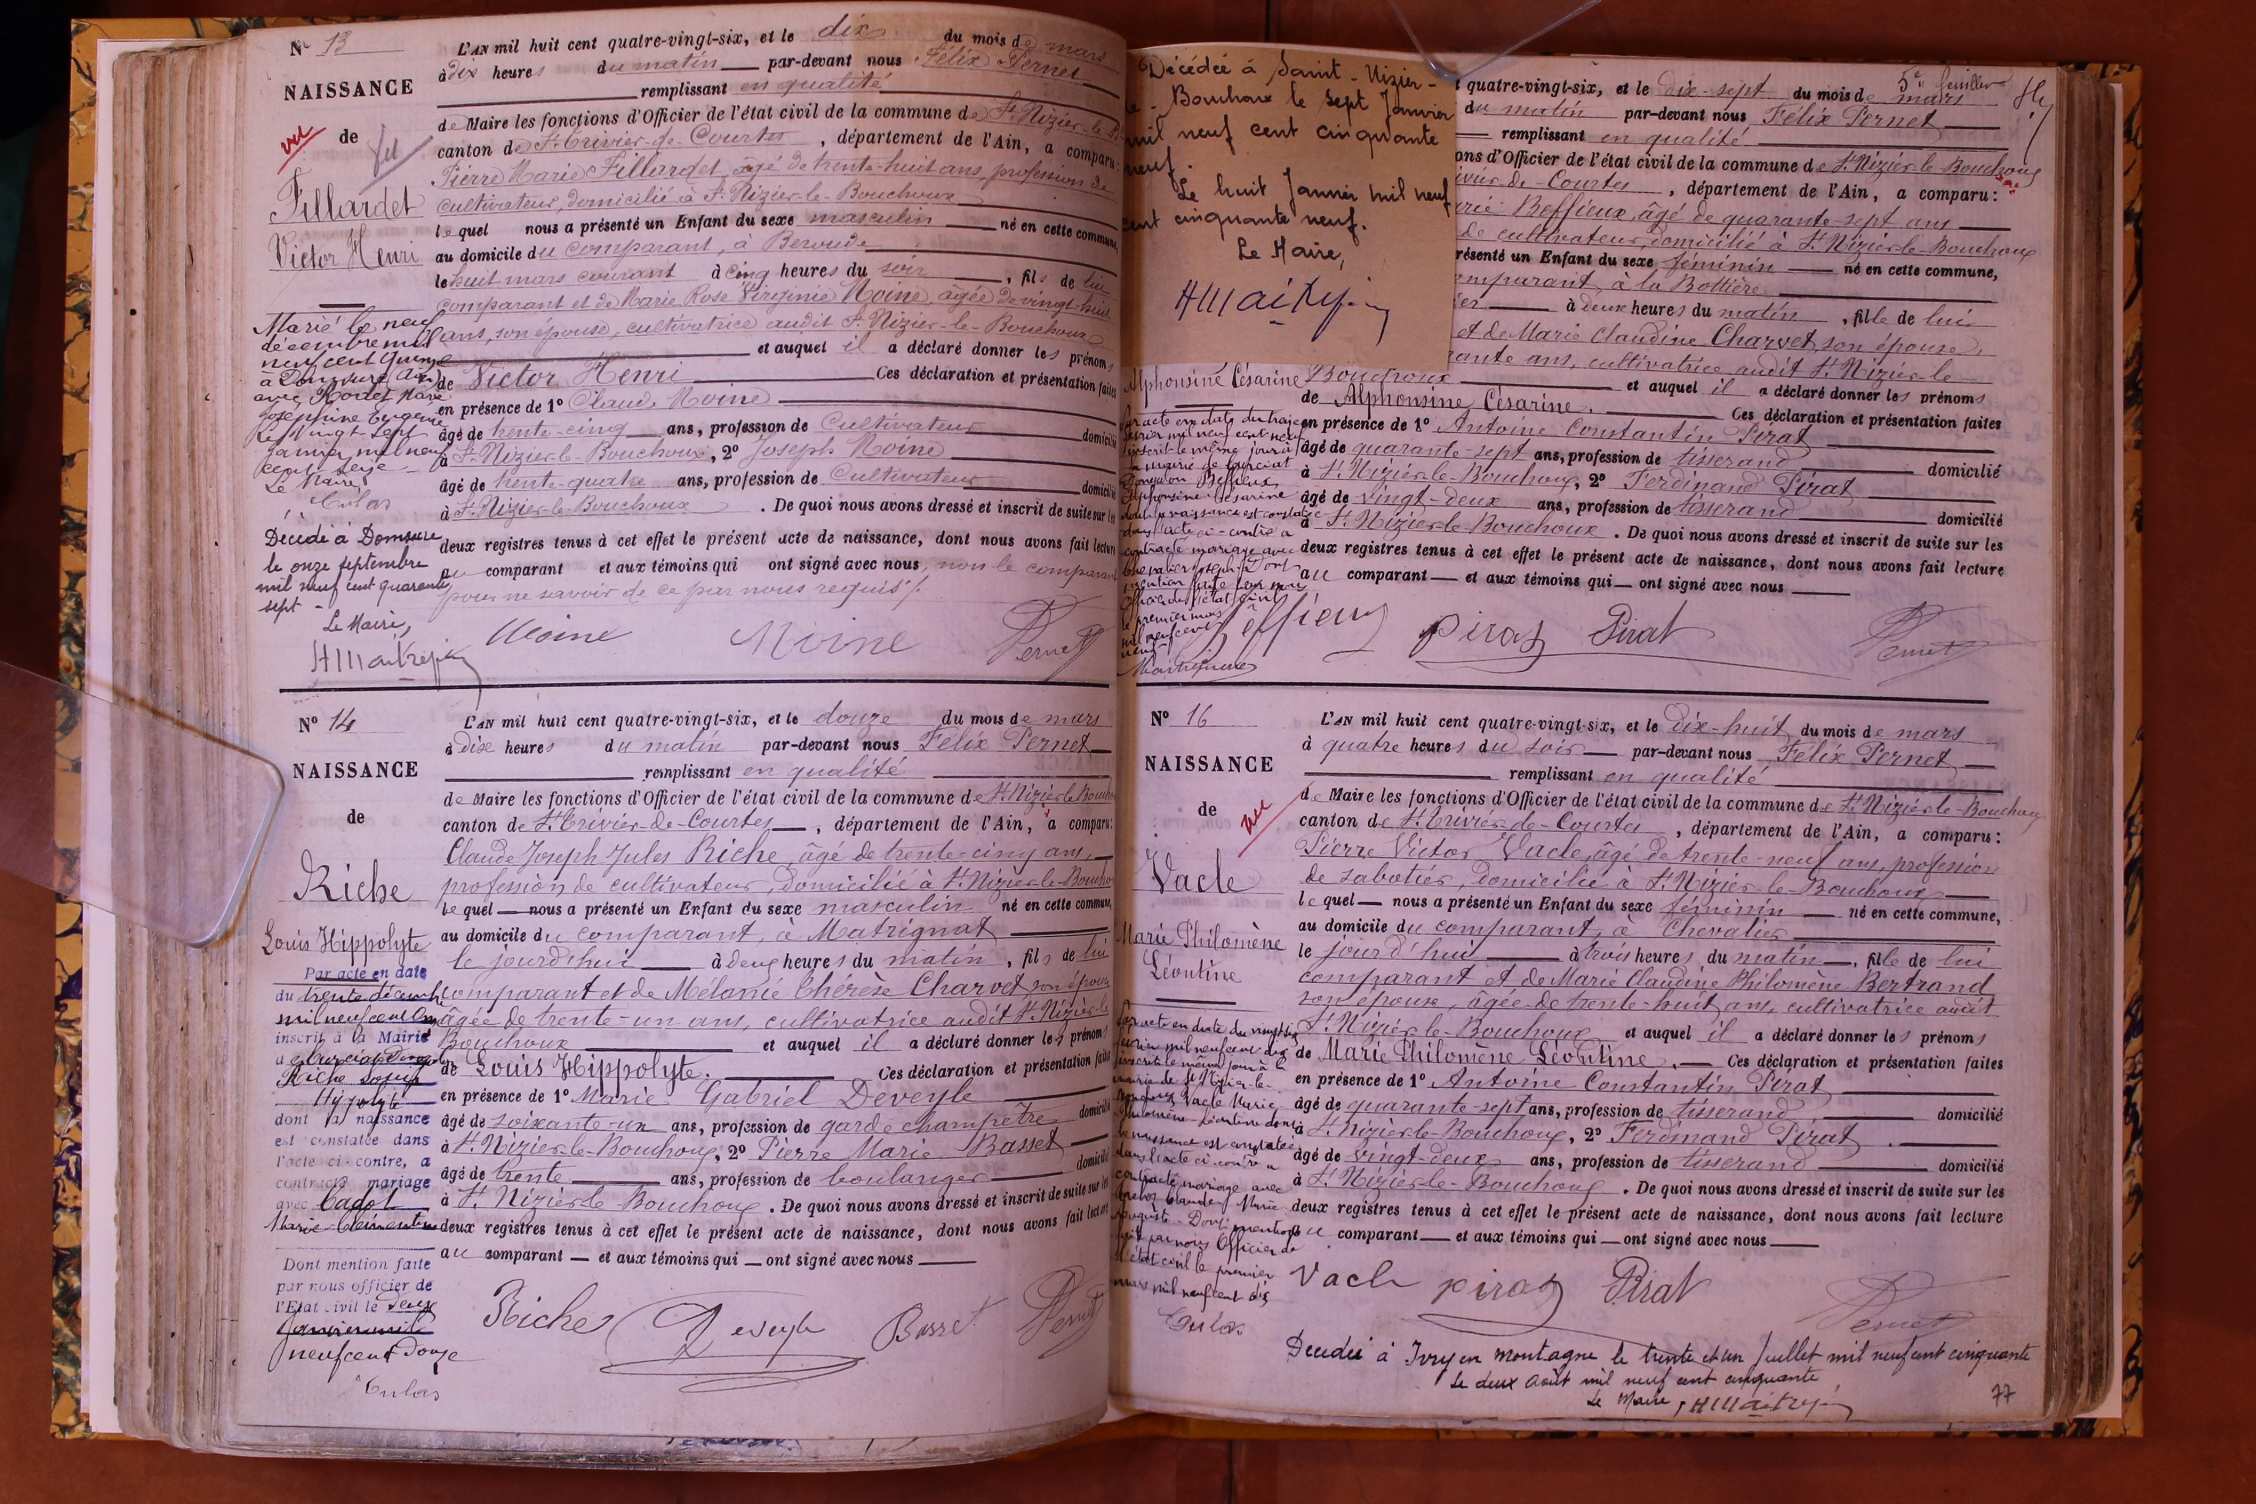 N° 13
NAISSANCE
de
vu
Fillardet
Victor Henri
L'AN mil huit cent quatre-vingt-six, et le dix du mois de mars
à dix heures du matin par-devant nous Félix Pernet
remplissant en qualité
de Maire les fonctions d'Officier de l'état civil de la commune de St Nizier-le-B
canton de St Trivier-de-Courtes, département de l'Ain, a comparu:
Pierre Marie Fillardet, âgé de trente-huit ans, profession de
cultivateur, domicilié à St Nizier-le-Bouchoux
lequel nous a présenté un Enfant du sexe masculin né en cette commune,
au domicile du comparant, à Beroude
le huit mars courant à cinq heures du soir, fils de lui
comparant et de Marie Rose Virginie Moine, âgée de vingt-huit
ans, son épouse, cultivatrice audit St Nizier-le-Bouchoux
et auquel il a déclaré donner les prénoms
de Victor Henri Ces déclaration et présentation faites
en présence de 1° Claude Moine
âgé de trente-cinq ans, profession de Cultivateur domicilié
à St Nizier-le-Bouchoux, 2° Joseph Moine
âgé de trente-quatre ans, profession de Cultivateur domicilié
à St Nizier-le-Bouchoux. De quoi nous avons dressé et inscrit de suite sur les
deux registres tenus à cet effet le présent acte de naissance, dont nous avons fait lecture
au comparant et aux témoins qui ont signé avec nous, non le comparant
pour ne savoir de ce par nous requis ./.
Moine Moine Pernet
Marié le neuf
décembre mil
neuf cent quinze
à Domsure (Ain)
avec Rodet Marie
Joséphine Eugénie
Le vingt-sept
janvier mil neuf
cent seize
Le Maire,
Culas
Décédé à Domsure
le onze septembre
mil neuf cent quarante
sept -
Le Maire,
HMaitrejean
N° 14
NAISSANCE
de
Riche
Louis Hippolyte
L'AN mil huit cent quatre-vingt-six, et le douze du mois de mars
à dix heures du matin par-devant nous Félix Pernet
remplissant en qualité
de Maire les fonctions d'Officier de l'état civil de la commune de St Nizier-le-Boucho
canton de St Trivier-de-Courtes, département de l'Ain, a comparu:
Claude Joseph Jules Riche, âgé de trente-cinq ans,
profession de cultivateur, domicilié à St Nizier-le-Boucho
lequel nous a présenté un Enfant du sexe masculin né en cette commune,
au domicile du comparant, à Matrignat
le jourd'hui à deux heures du matin, fils de lui
comparant et de Mélanie Thérèse Charvet, son épouse
âgée de trente-un ans, cultivatrice audit St Nizier-le
Bouchoux et auquel il a déclaré donner les prénoms
de Louis Hippolyte. Ces déclaration et présentation faites
en présence de 1° Marie Gabriel Deveyle
âgé de soixante-un ans, profession de garde champêtre domicilié
à St Nizier-le-Bouchoux, 2° Pierre Marie Basset
âgé de trente ans, profession de boulanger domicilié
à St Nizier-le Bouchoux. De quoi nous avons dressé et inscrit de suite sur les
deux registres tenus à cet effet le présent acte de naissance, dont nous avons fait lecture
au comparant et aux témoins qui ont signé avec nous
Riche Deveyle Basset Pernet
Par acte en date
du trente décemb
mil neuf cent
inscrit à la Mairie
Riche
dont la naissance
est constatée dans
l'acte ci-contre, a
contracté mariage
avec Cadot
Marie-Clémentine
Dont mention faite
par nous officier de
l'Etat civil le deux
Janvier mil
neuf cent douze
Culas
Décédée à Saint-Nizier-
le-Bouchoux le sept Janvier
mil neuf cent cinquante
neuf.
Le huit Janvier mil neuf
cent cinquante neuf.
Le Maire,
HMaitrejean
5e feuillet
quatre-vingt-six, et le dix-sept du mois de mars
du matin par-devant nous Félix Pernet
remplissant en qualité
ons d'Officier de l'état civil de la commune de St Nizier-le-Bouchoux
ivier-de-Courtes, département de l'Ain, a comparu:
arie Beffieux, âgé de quarante-sept ans
de cultivateur, domicilié à St Nizier-le-Bouchoux
résenté un Enfant du sexe féminin né en cette commune,
omparant, à la Bottière
ier à deux heures du matin, fille de lui
et de Marie Claudine Charvet, son épouse,
rante ans, cultivatrice audit St Nizier-le
Alphonsine Césarine
Bouchoux et auquel il a déclaré donner les prénoms
de Alphonsine Césarine. Ces déclaration et présentation faites
en présence de 1° Antoine Constantin Pirat
âgé de quarante-sept ans, profession de tisserand domicilié
à St Nizier-le-Bouchoux, 2° Ferdinand Pirat
âgé de vingt-deux ans, profession de tisserand domicilié
à St Nizier-le-Bouchoux. De quoi nous avons dressé et inscrit de suite sur les
deux registres tenus à cet effet le présent acte de naissance, dont nous avons fait lecture
au comparant et aux témoins qui ont signé avec nous
Beffieux Pirat Pirat Pernet
inscrit le même jour à
Beffieux
Alphonsine Césarine
dont la naissance est constatée
dans l'acte ci-contre a
contracté mariage avec
N° 16
NAISSANCE
de
vu
Vacle
Marie Philomène
Léontine
L'AN mil huit cent quatre-vingt-six, et le dix-huit du mois de mars
à quatre heures du soir par-devant nous Félix Pernet
remplissant en qualité
de Maire les fonctions d'Officier de l'état civil de la commune de St Nizier-le-Bouchoux
canton de St Trivier-de-Courtes, département de l'Ain, a comparu:
Pierre Victor Vacle, âgé de trente-neuf ans, profession
de sabotier, domicilié à St Nizier-le-Bouchoux
lequel nous a présenté un Enfant du sexe féminin né en cette commune,
au domicile du comparant, à Chevalier
le jourd'hui à trois heures du matin, fille de lui
comparant et de Marie Claudine Philomène Bertrand
son épouse, âgée de trente-huit ans, cultivatrice audit
St Nizier-le-Bouchoux et auquel il a déclaré donner les prénoms
de Marie Philomène Léontine. Ces déclaration et présentation faites
en présence de 1° Antoine Constantin Pirat
âgé de quarante-sept ans, profession de tisserand domicilié
à St Nizier-le-Bouchoux, 2° Ferdinand Pirat
âgé de vingt-deux ans, profession de tisserand domicilié
à St Nizier-le-Bouchoux. De quoi nous avons dressé et inscrit de suite sur les
deux registres tenus à cet effet le présent acte de naissance, dont nous avons fait lecture
au comparant et aux témoins qui ont signé avec nous
Vacle Pirat Pirat Pernet
inscrit le même jour à la
mairie de St Nizier-le-
Bouchoux Vacle Marie
Philomène Léontine dont
la naissance est constatée
dans l'acte ci-contre a
contracté mariage avec
Claude Marie
Auguste - Dont mention
faite par nous Officier de
l'état civil le premier
mars mil neuf cent dix
Culas
Décédée à Ivry en Montagne le trente et un Juillet mil neuf cent cinquante
Le deux Août mil neuf cent cinquante
Le Maire, HMaitrejean
77